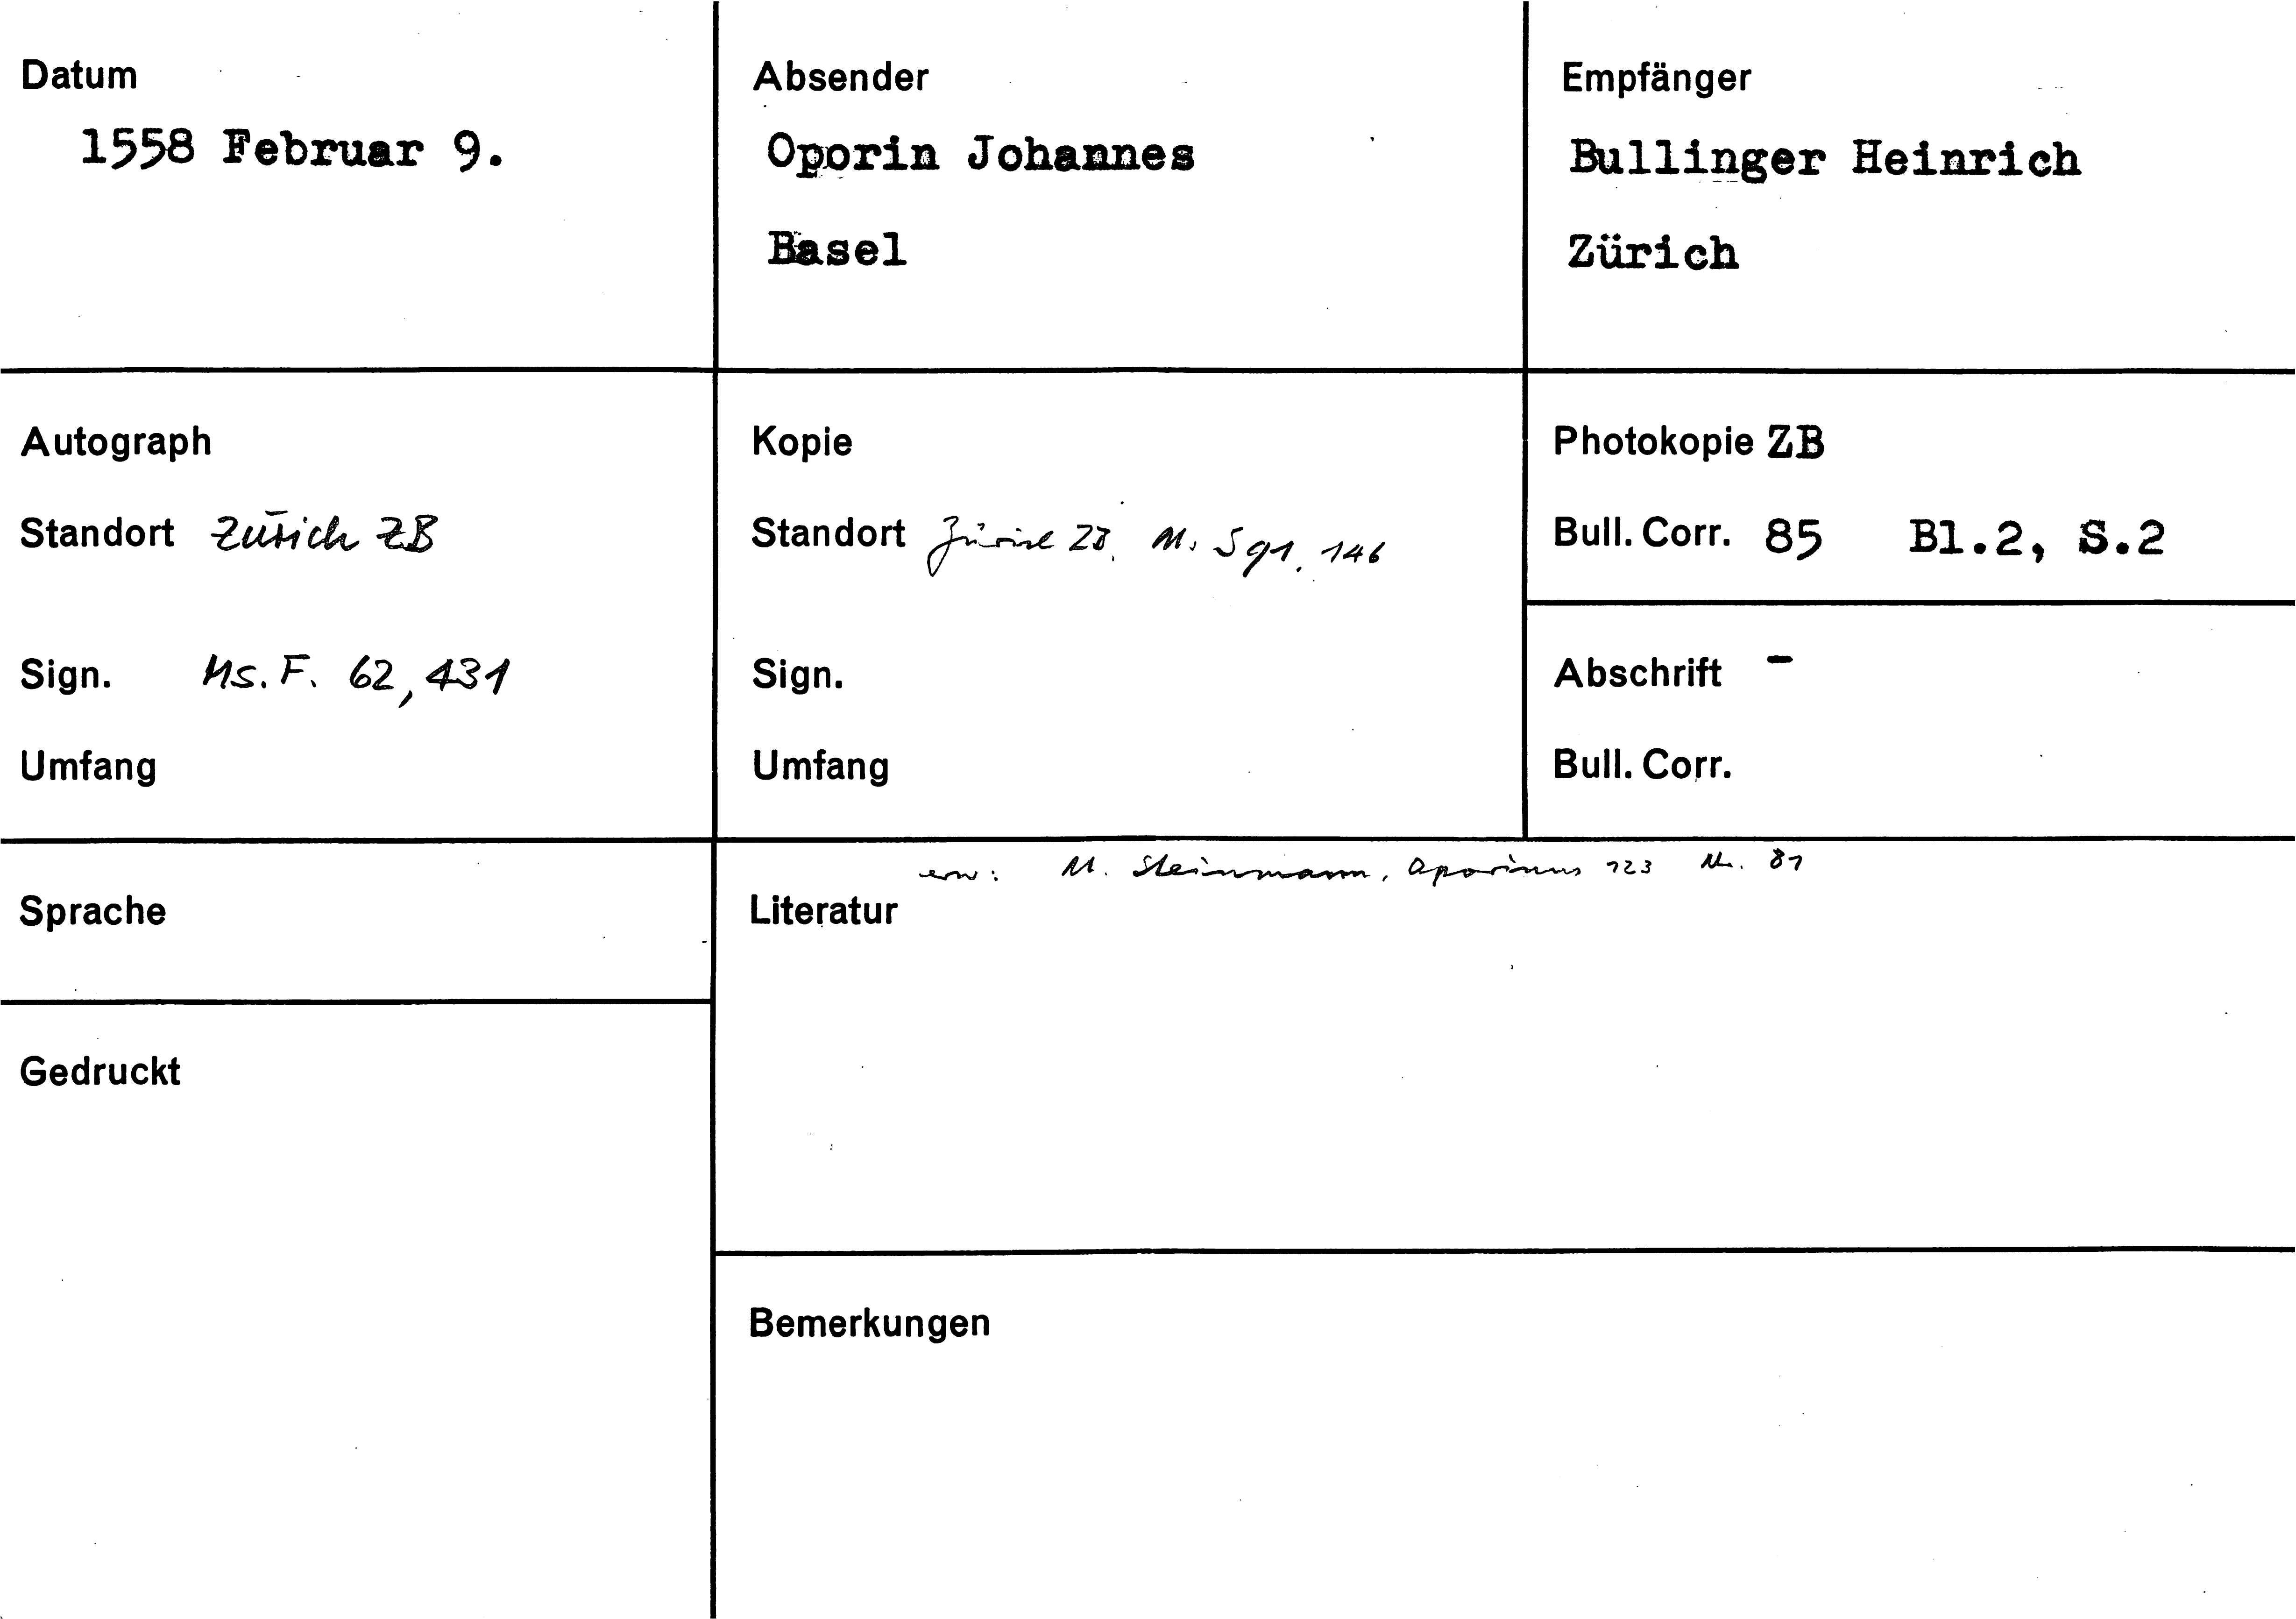 Datum
1558 Februar 9.
Absender
Oporin Johannes
Basel
Empfänger
Bullinger Heinrich
Zürich
Autograph
Standort Zürich ZB
Sign. Ms. F. 62, 431
Umfang
Kopie
Standort Zürich ZB, Ms. S 91, 146
Sign.
Umfang
Photokopie ZB
Bull. Corr. 85 Bl.2, S.2
Abschrift -
Bull. Corr.
Sprache
Gedruckt
erw: M. Steinmann, Oporinus 123 Nr. 81
Literatur
Bemerkungen